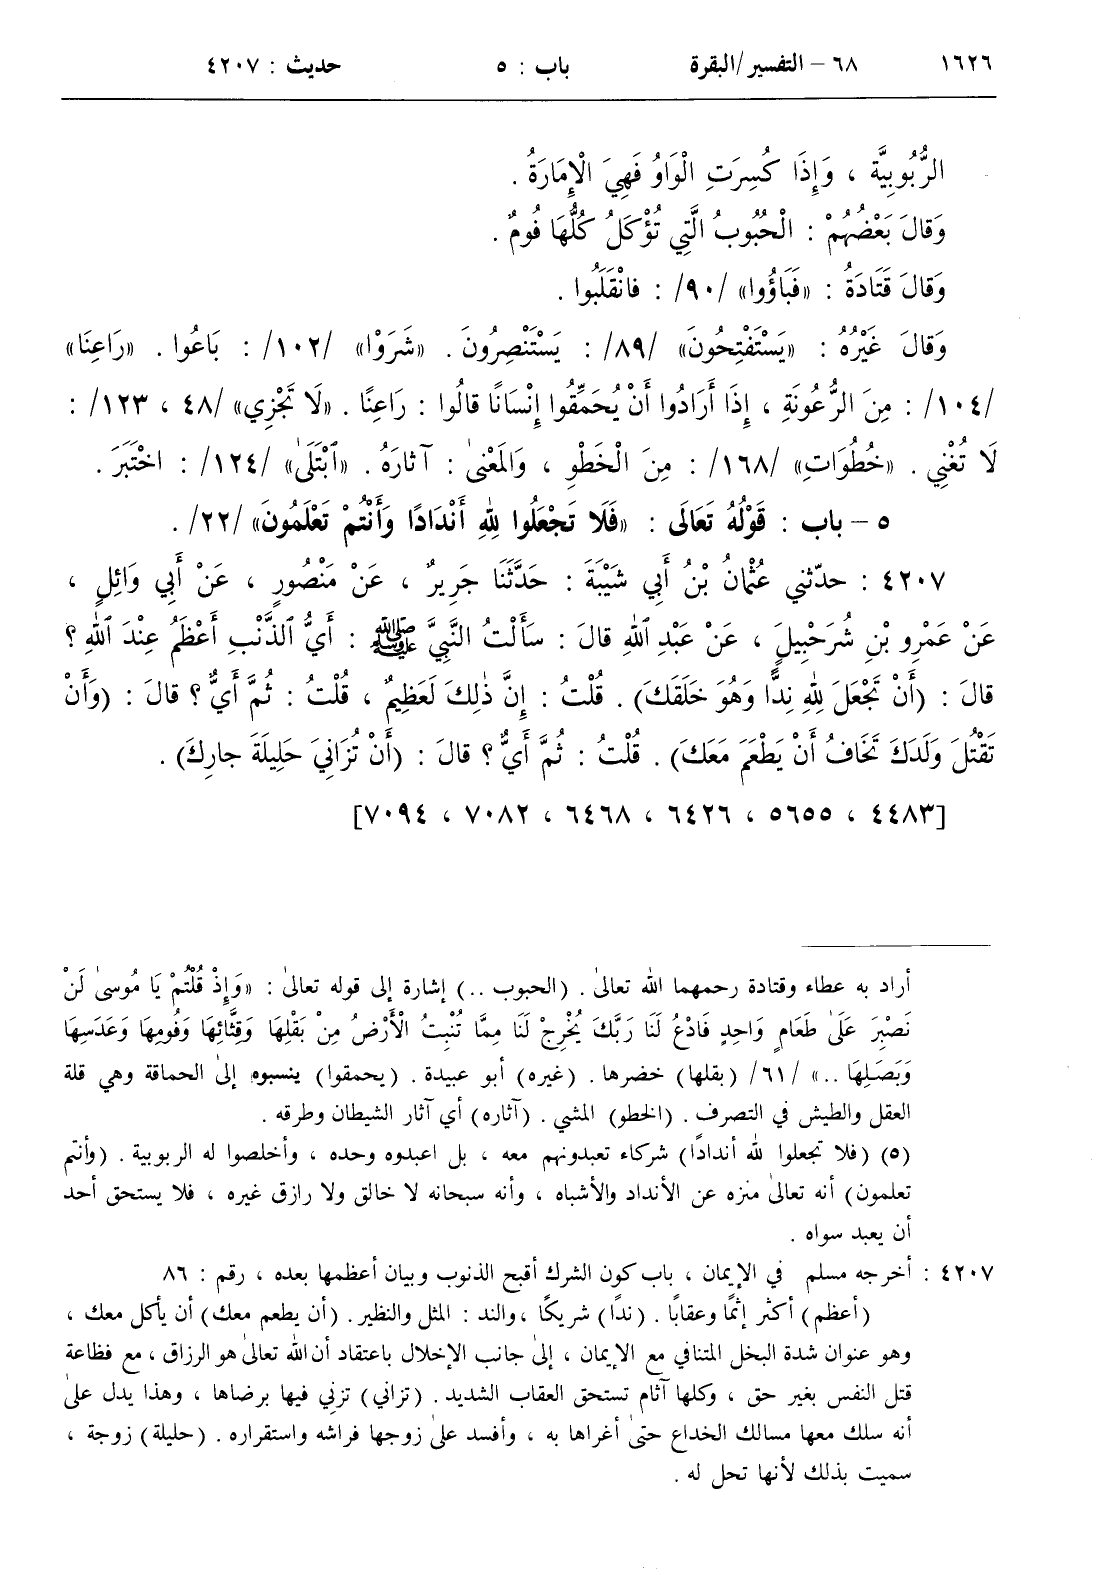 ١٦٢٦ ٦٨ – التفسير/البقرة باب : ٥ حديث : ٤٢٠٧
الرُّبُوبِيَّة ، وَإِذَا كُسِرَتِ الْوَاوُ فَهِيَ الْإِمَارَةُ .
وَقالَ بَعْضُهُمْ : الْحُبُوبُ الَّتِي تُؤْكَلُ كُلُّهَا فُومٌ .
وَقالَ قَتَادَةُ : «فَبَاؤُوا» /٩٠/ : فانْقَلَبُوا .
وَقالَ غَيْرُهُ : «يَسْتَفْتِحُونَ» /٨٩/ : يَسْتَنْصِرُونَ . «شَرَوْا» /١٠٢/ : بَاعُوا . «رَاعِنَا»
/١٠٤/ : مِنَ الرُّعُونَةِ ، إِذَا أَرَادُوا أَنْ يُحَمِّقُوا إِنْسَانًا قالُوا : رَاعِنًا . «لَا تَجْزِي» /٤٨ ، ١٢٣/ :
لَا تُغْنِي . «خُطُوَاتِ» /١٦٨/ : مِنَ الْخَطْوِ ، وَالمَعْنىٰ : آثارَهُ . «ٱبْتَلَىٰ» /١٢٤/ : اخْتَبَرَ .
٥ – باب : قَوْلُهُ تَعَالَى : «فَلَا تَجْعَلُوا لِلهِ أَنْدَادًا وَأَنْتُمْ تَعْلَمُونَ» /٢٢/ .
٤٢٠٧ : حدّثني عُثْمانُ بْنُ أَبِي شَيْبَةَ : حَدَّثَنَا جَرِيرٌ ، عَنْ مَنْصُورٍ ، عَنْ أَبِي وَائِلٍ ،
عَنْ عَمْرِو بْنِ شُرَحْبِيلَ ، عَنْ عَبْدِ ٱللهِ قالَ : سَأَلْتُ النَّبِيَّ ﷺ : أَيُّ ٱلذَّنْبِ أَعْظَمُ عِنْدَ ٱللهِ ؟
قالَ : (أَنْ تَجْعَلَ لِلهِ نِدًّا وَهُوَ خَلَقَكَ) . قُلْتُ : إِنَّ ذٰلِكَ لَعَظِيمٌ ، قُلْتُ : ثُمَّ أَيٌّ ؟ قالَ : (وَأَنْ
تَقْتُلَ وَلَدَكَ تَخَافُ أَنْ يَطْعَمَ مَعَكَ) . قُلْتُ : ثُمَّ أَيٌّ ؟ قالَ : (أَنْ تُزَانِيَ حَلِيلَةَ جارِكَ) .
[٤٤٨٣ ، ٥٦٥٥ ، ٦٤٢٦ ، ٦٤٦٨ ، ٧٠٨٢ ، ٧٠٩٤]
أراد به عطاء وقتادة رحمهما الله تعالىٰ . (الحبوب ..) إشارة إلى قوله تعالىٰ : «وَإِذْ قُلْتُمْ يَا مُوسىٰ لَنْ
نَصْبِرَ عَلَىٰ طَعَامٍ وَاحِدٍ فَادْعُ لَنَا رَبَّكَ يُخْرِجْ لَنَا مِمَّا تُنْبِتُ الْأَرْضُ مِنْ بَقْلِهَا وَقِثَّائِهَا وَفُومِهَا وَعَدَسِهَا
وَبَصَلِهَا ..» /٦١/ (بقلها) خضرها . (غيره) أبو عبيدة . (يحمقوا) ينسبوه إلىٰ الحماقة وهي قلة
العقل والطيش في التصرف . (الخطو) المشي . (آثاره) أي آثار الشيطان وطرقه .
(٥) (فلا تجعلوا لله أندادًا) شركاء تعبدونهم معه ، بل اعبدوه وحده ، وأخلصوا له الربوبية . (وأنتم
تعلمون) أنه تعالىٰ منزه عن الأنداد والأشباه ، وأنه سبحانه لا خالق ولا رازق غيره ، فلا يستحق أحد
أن يعبد سواه .
٤٢٠٧ : أخرجه مسلم في الإيمان ، باب كون الشرك أقبح الذنوب وبيان أعظمها بعده ، رقم : ٨٦
(أعظم) أكثر إثمًا وعقابًا . (ندًا) شريكًا ، والند : المثل والنظير . (أن يطعم معك) أن يأكل معك ،
وهو عنوان شدة البخل المتنافي مع الإيمان ، إلىٰ جانب الإخلال باعتقاد أن الله تعالىٰ هو الرزاق ، مع فظاعة
قتل النفس بغير حق ، وكلها آثام تستحق العقاب الشديد . (تزاني) تزني فيها برضاها ، وهذا يدل علىٰ
أنه سلك معها مسالك الخداع حتىٰ أغراها به ، وأفسد علىٰ زوجها فراشه واستقراره . (حليلة) زوجة ،
سميت بذلك لأنها تحل له .